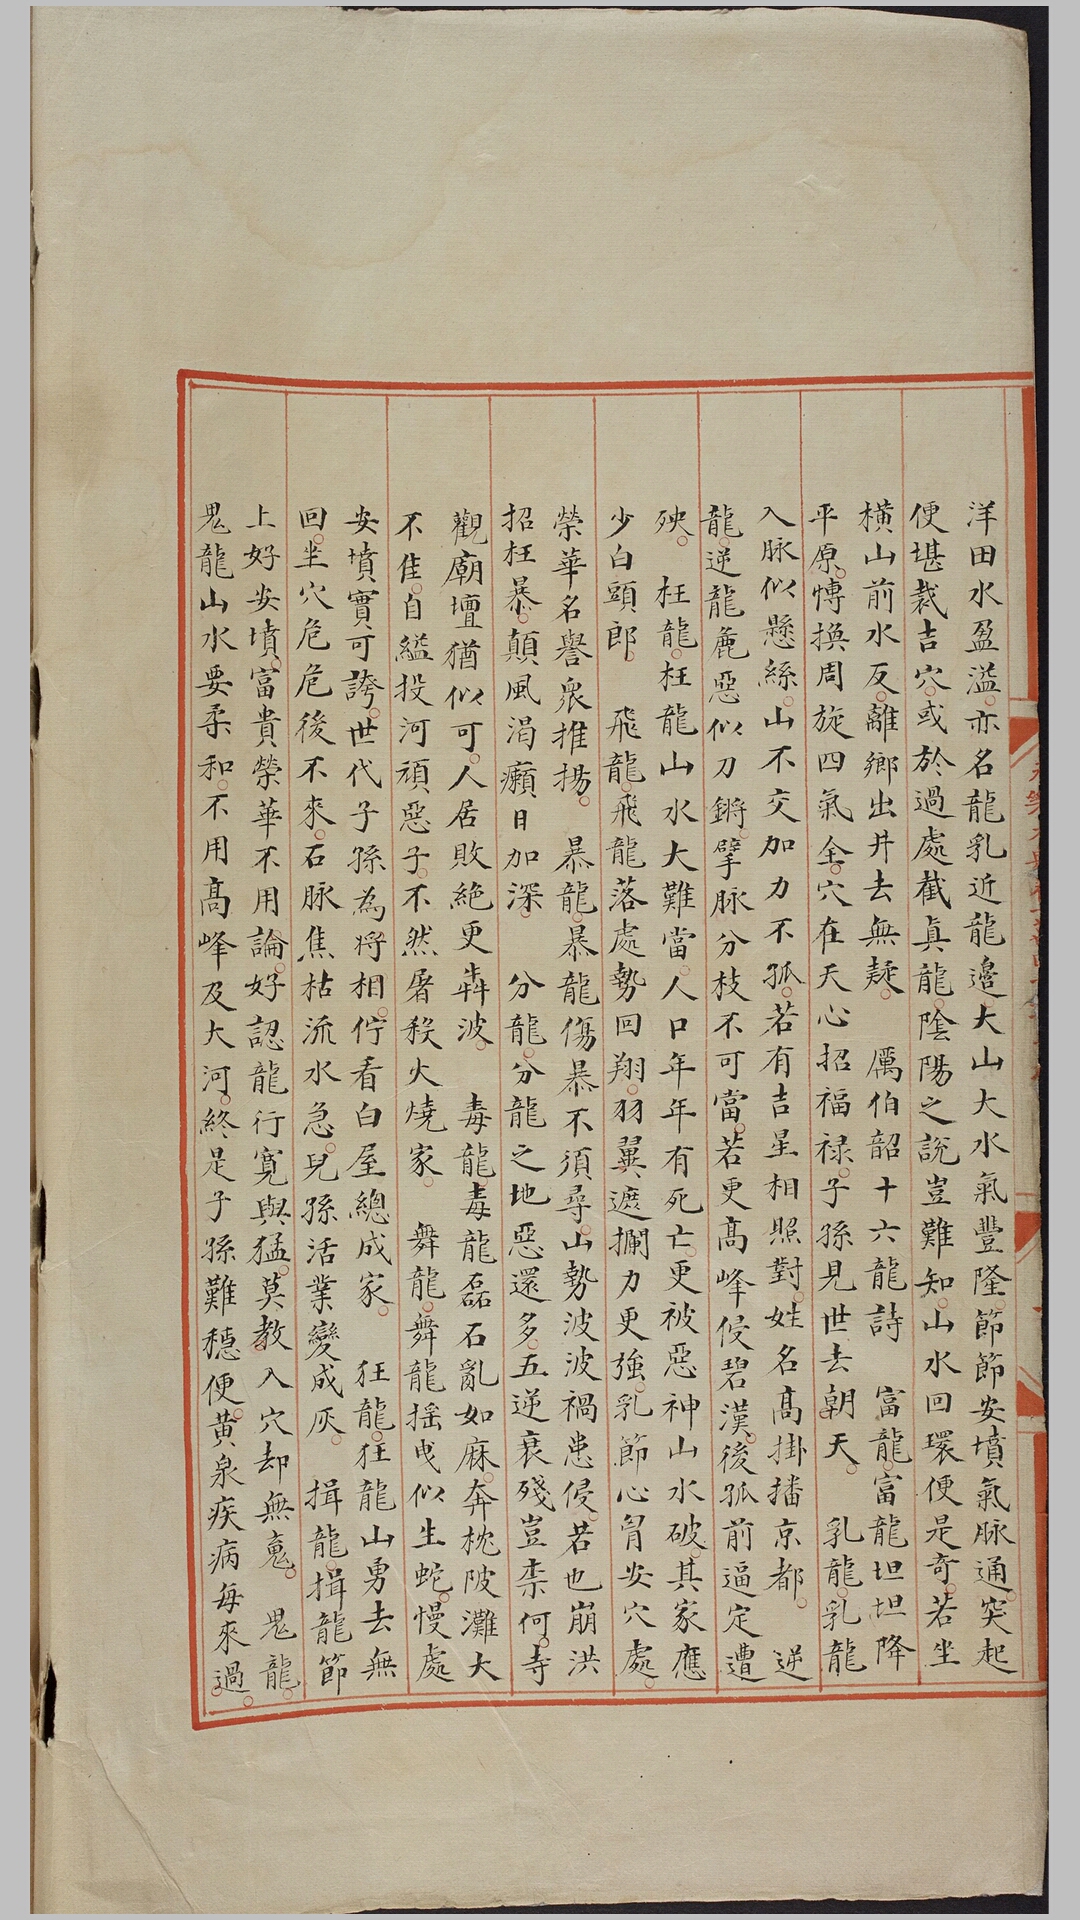 洋田水盈溢亦名龍乳近龍邉大山大水氣豐隆節節安墳氣脉通突起
便堪裁吉穴或於過處截真龍隂陽之說豈難知山水回環便是竒若坐
橫山前水反離鄉出井去無疑　厲伯韶十六龍詩　富龍富龍坦坦降
平原慱換周旋四氣全穴在天心招福祿子孫見世去朝天　乳龍乳龍
入脉似懸絲山不交加力不孤若有吉星相照對姓名髙掛播京都　逆
龍逆龍麁惡似刀鏘擘脉分枝不可當若更髙峰侵碧漢後孤前逼定遭
殃　枉龍枉龍山水大難當人口年年有死亡更被惡神山水破其家應
少白頭郎　飛龍飛龍落處勢回翔羽翼遮攔力更強乳節心胷安穴處
榮華名譽衆推揚　暴龍暴龍傷暴不須尋山勢波波禍患侵若也崩洪
招枉暴顛風渴癩日加深　分龍分龍之地惡還多五逆衰殘豈柰何寺
觀廟壇猶似可人居敗絶更犇波　毒龍毒龍磊石亂如麻奔枕陂灘大
不佳自縊投河頑惡子不然屠殺火燒家　舞龍舞龍揺曵似生蛇慢處
安墳實可誇世代子孫為將相佇看白屋總成家　狂龍狂龍山勇去無
回坐穴危危後不來石脉焦枯流水急兒孫活業變成灰　揖龍揖龍節
上好安墳富貴榮華不用論好認龍行寛與猛莫教入穴却無䰟　鬼龍
鬼龍山水要柔和不用髙峰及大河終是子孫難穩便黄泉疾病每來過